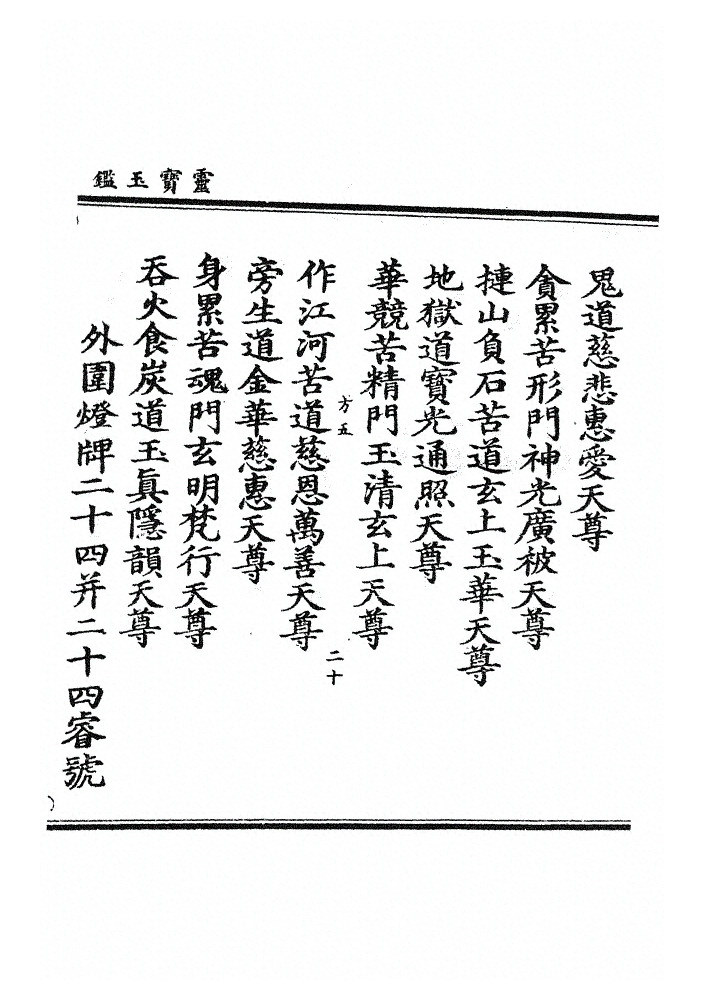 靈寶玉鑑
鬼道慈悲惠愛天尊
貪累苦形門神光廣被天尊
摙山負石苦道玄上玉華天尊
地獄道寶光通照天尊
華競苦精門玉清玄上天尊
方五
二十
作江河苦道慈恩萬善天尊
旁生道金華慈惠天尊
身累苦魂門玄明梵行天尊
吞火食炭道玉眞隱韻天尊
外圍燈牌二十四并二十四睿號